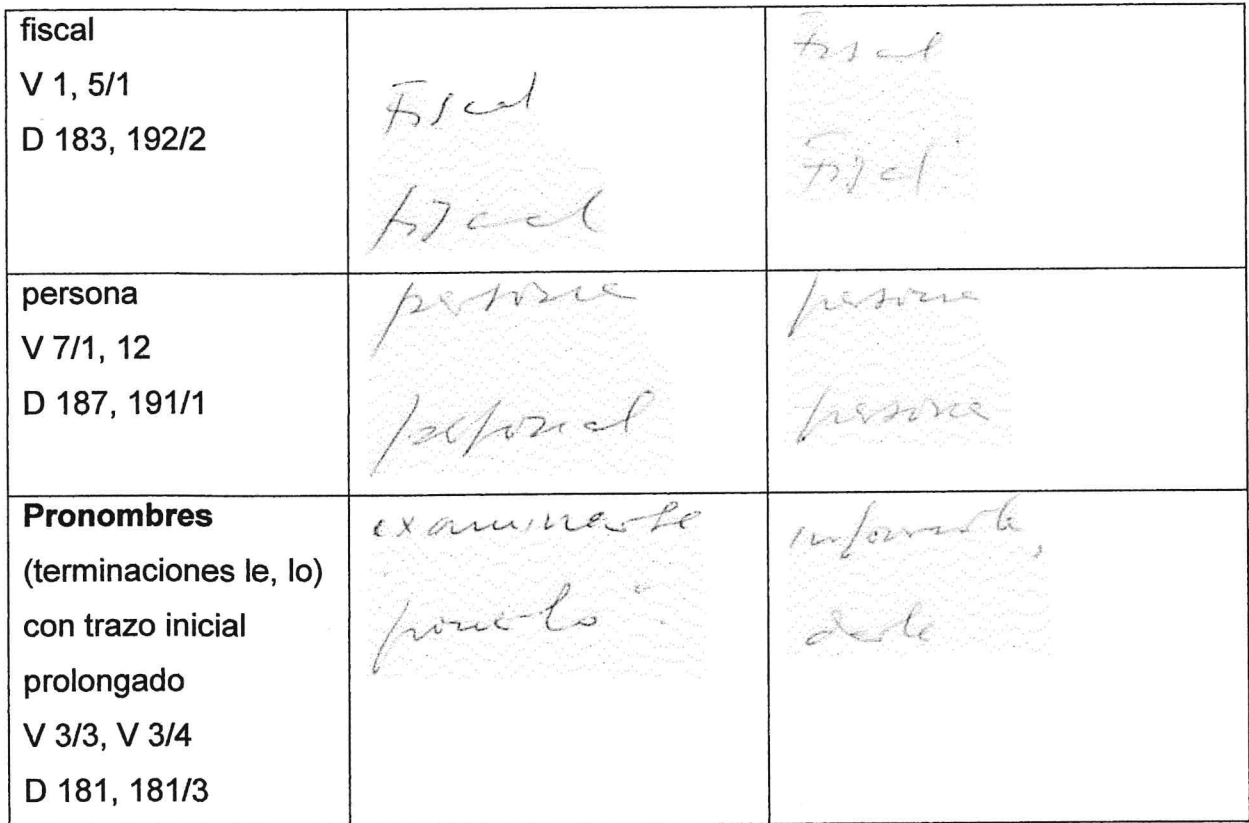 fiscal
V 1, 5/1
D 183, 192/2
Fiscal
fiscal
Fiscal
Fiscal
persona
V 7/1, 12
D 187, 191/1
persona
personal
persona
persona
Pronombres
(terminaciones le, lo)
con trazo inicial
prolongado
V 3/3, V 3/4
D 181, 181/3
examinarle
ponerlo
informarle,
darle